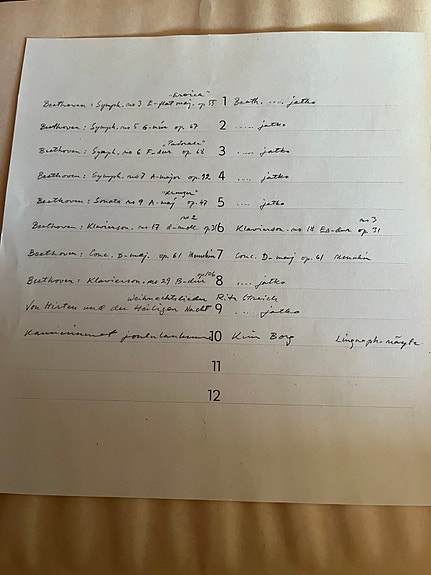 "Eroica"
Beethoven: Symph. no 3 E-flat maj. op. 55 1 Beeth. .... jatko
Beethoven: Symph. no 5 op. 67 2 ..... jatko
"Pastorale"
Beethoven: Symph. no 6 F-dur op. 68 3 ..... jatko
Beethoven: Symph. no 7 A-major op. 92 4 .... jatko
"Kreuzer"
Beethoven: Sonata no 9 A-maj op. 47 5 .... jatko
no 2 no 3
Beethoven: Klavierson. no 17 d-moll op. 31 6 Klavierson. no 18 Es-dur op. 31
Beethoven: Conc. D-maj. op. 61 Menuhin 7 Conc. D-maj op. 61 Menuhin
op 106
Beethoven: Klavierson. no 29 B-dur 8 ..... jatko
Weihnachtslieder Rita Streich
Von Hirten und der Heiligen Nacht 9 ..... jatko
Kauneimmat joululaulumme 10 Kim Borg Linguaph.-näyte
11
12